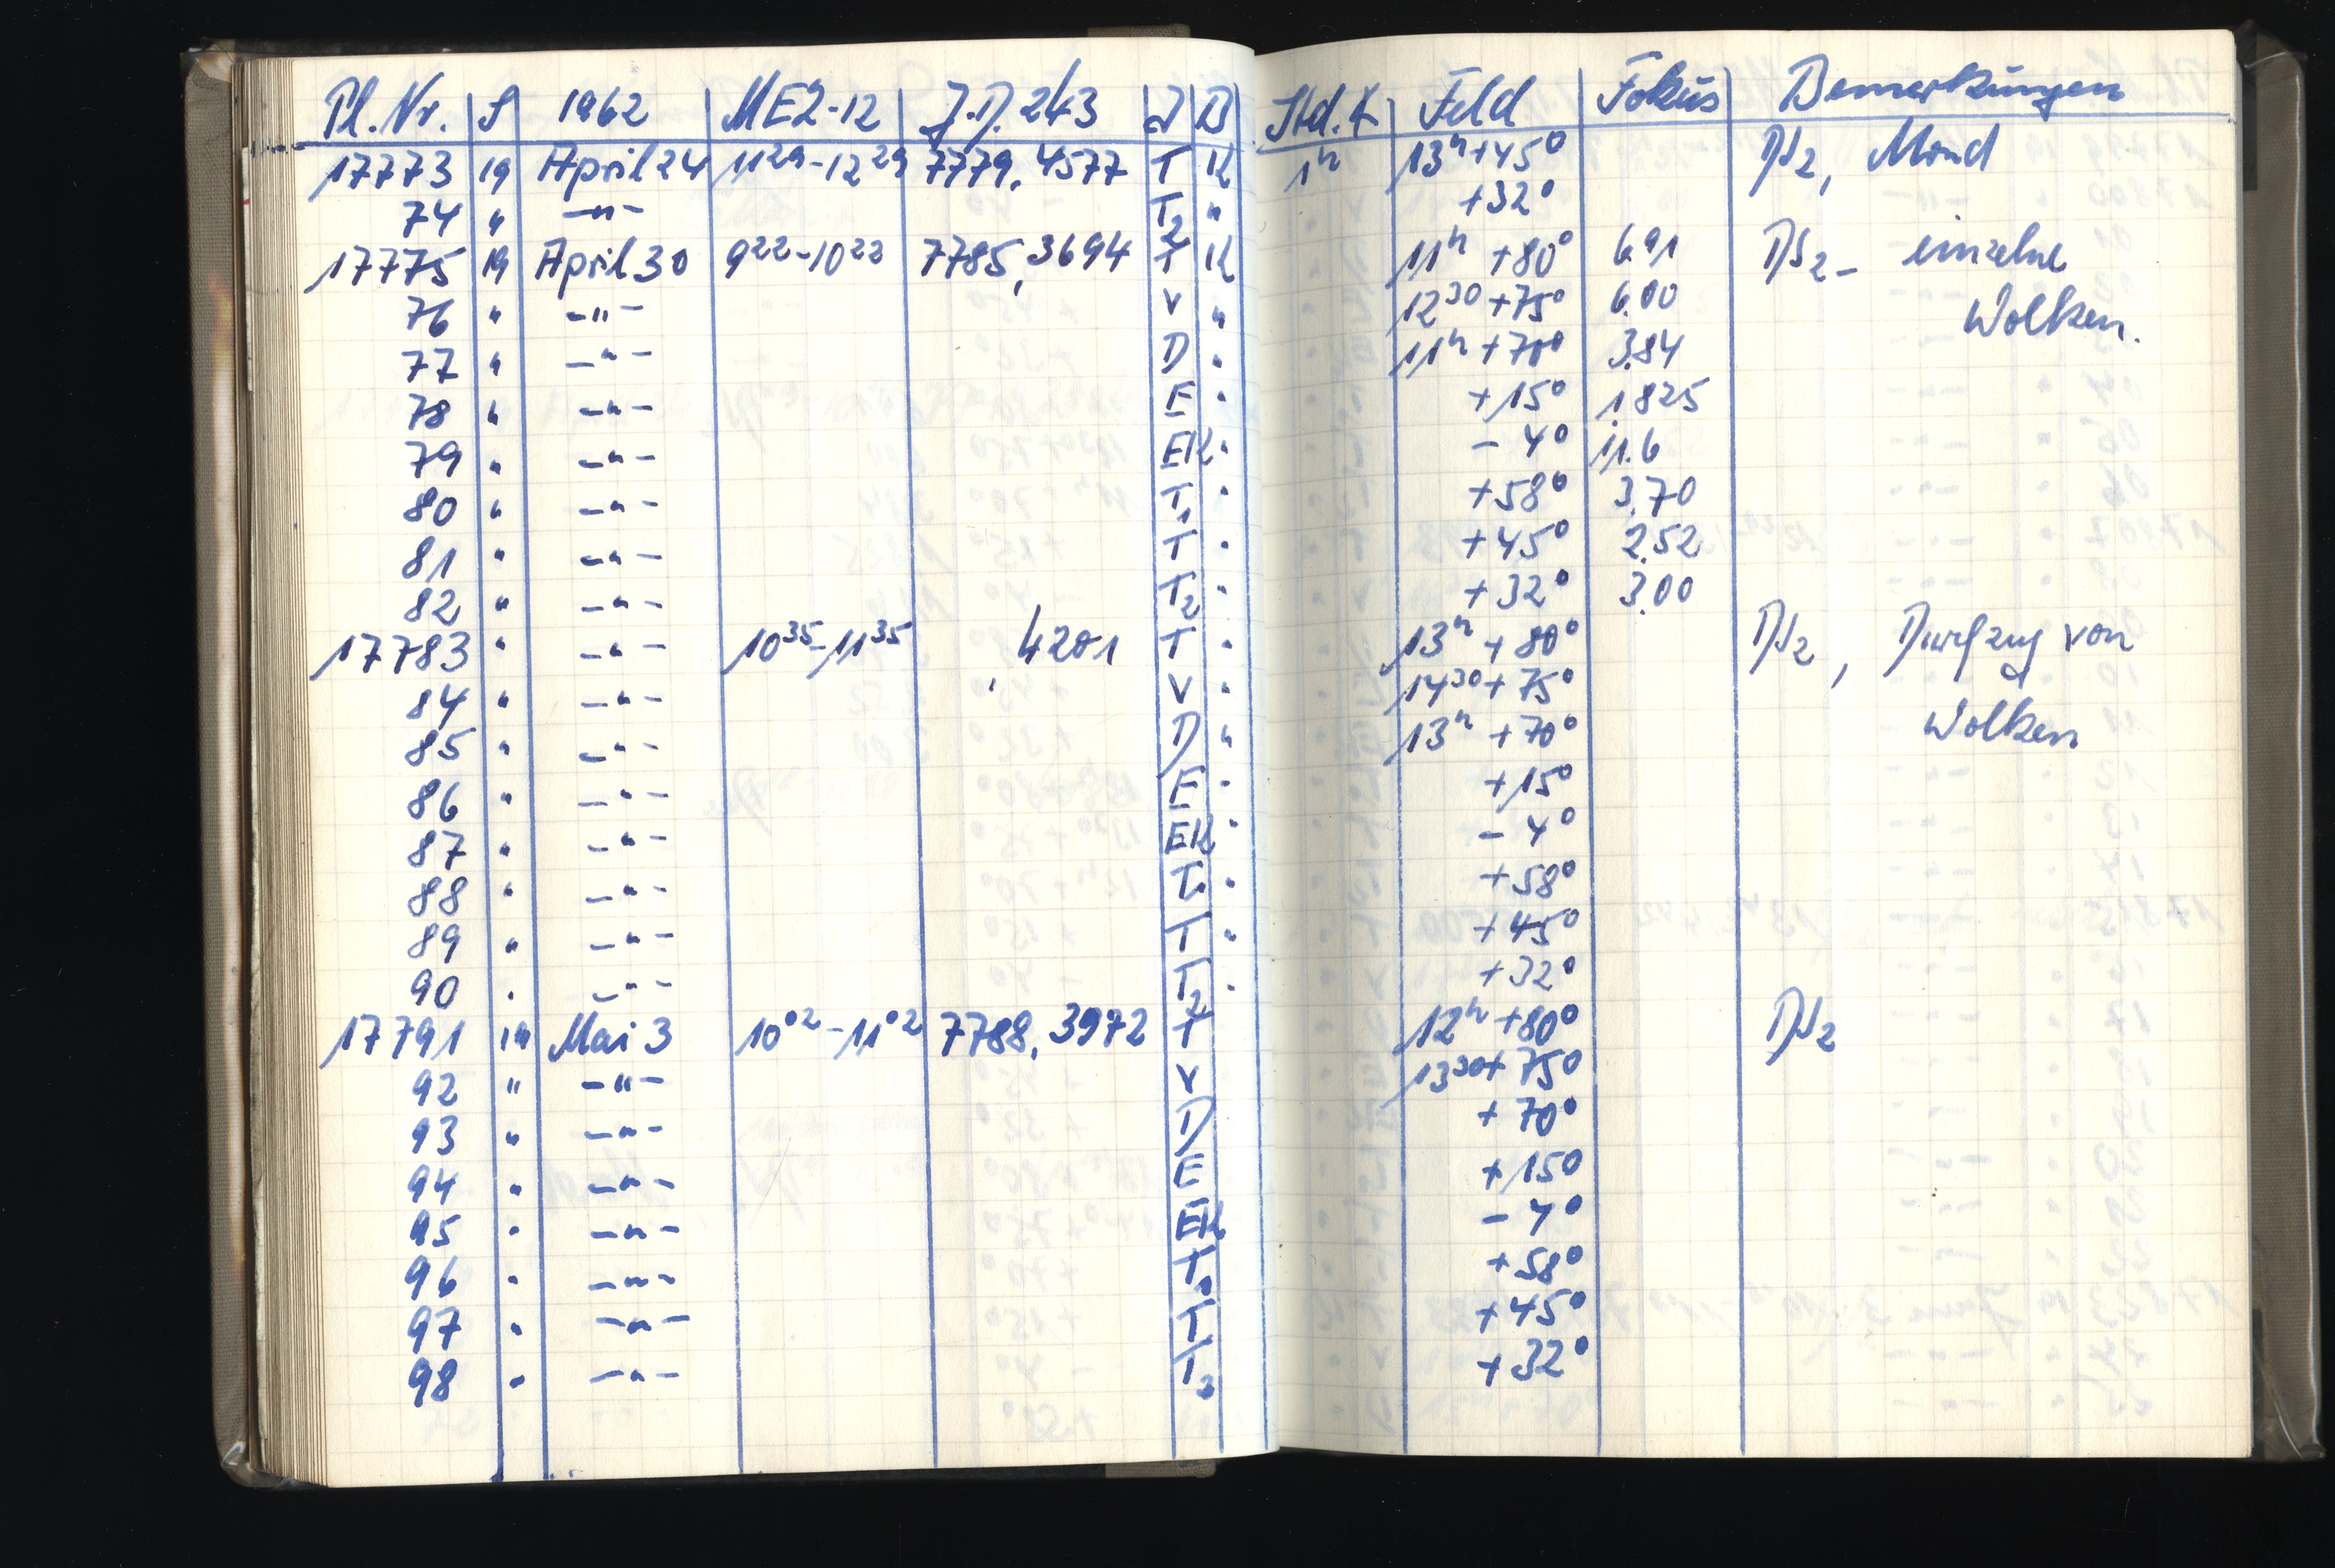 Pl. Nr. S 1962 MEZ-12 J.D. 243 J B Std.∢ Feld Fokus Bemerkungen
17773 19 April 24 11²⁹-12²⁹ 7779,4577 T K 1ʰ 13ʰ+45° Ds₂, Mond
74 " -"- T₂ " +32°
17775 19 April 30 9²²-10²² 7785,3694 T K 11ʰ +80° 6.91 Ds₂- einzelne
76 " -"- V " 12³⁰ +75° 6.00 Wolken.
77 " -"- D " 11ʰ +70° 3.84
78 " -"- E " +15° 1.825
79 " -"- EK " - 4° 11.6
80 " -"- T₁ " +58° 3.70
81 " -"- T " +45° 2.52
82 " -"- T₂ " +32° 3.00
17783 " -"- 10³⁵-11³⁵ ,4201 T " 13ʰ +80° Ds₂, Durchzug von
84 " -"- V " 14³⁰+75°
85 " -"- D " 13ʰ +70° Wolken
86 " -"- E " +15°
87 " -"- EK " - 4°
88 " -"- T₁ " +58°
89 " -"- T " +45°
90 " -"- T₂ " +32°
17791 19 Mai 3 10⁰²-11⁰² 7788,3972 T 12ʰ +80° Ds₂
92 " -"- V 13³⁰+75°
93 " -"- D +70°
94 " -"- E +15°
95 " -"- EK - 4°
96 " -"- T₁ +58°
97 " -"- T +45°
98 " -"- T₂ +32°